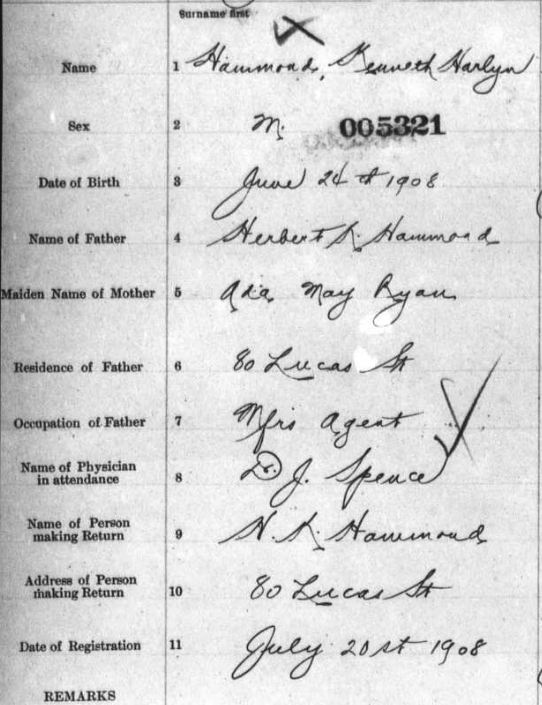 Surname first
Name 1 Hammond, Kenneth Harlyn
Sex 2 M. 005321
Date of Birth 3 June 24th 1908
Name of Father 4 Herbert K. Hammond
Maiden Name of Mother 5 Ada May Ryan
Residence of Father 6 80 Lucas St
Occupation of Father 7 Mfrs Agent
Name of Physician
in attendance 8 Dr. J. Spence
Name of Person
making Return 9 H. K. Hammond
Address of Person
making Return 10 80 Lucas St
Date of Registration 11 July 20st 1908
REMARKS